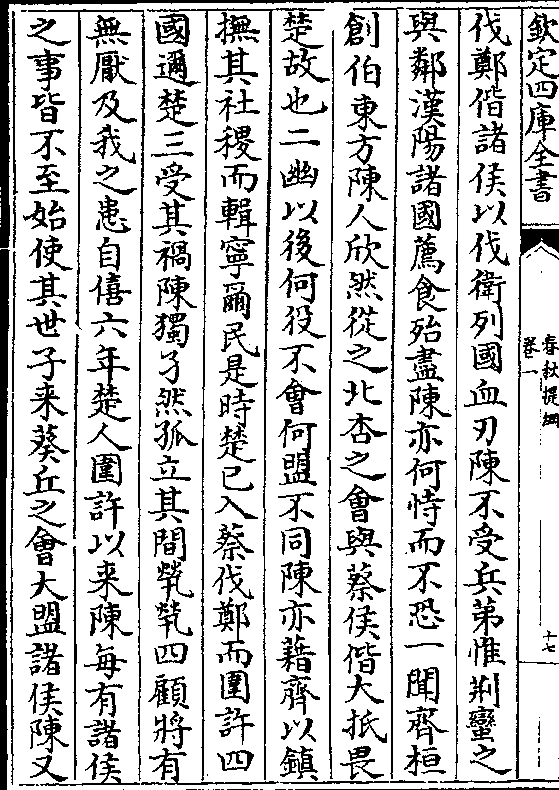 欽定四庫全書
春秋提綱
卷一
十七
伐鄭偕諸侯以伐衛列國血刃陳不受兵弟惟荆蠻之
與鄰漢陽諸國薦食殆盡陳亦何恃而不恐一聞齊桓
創伯東方陳人欣然從之北杏之會與蔡侯偕大抵畏
楚故也二幽以後何役不會何盟不同陳亦藉齊以鎮
撫其社稷而輯寧爾民是時楚已入蔡伐鄭而圍許四
國邇楚三受其禍陳獨孑然孤立其間煢煢四顧將有
無厭及我之患自僖六年楚人圍許以来陳每有諸侯
之事皆不至始使其世子来葵丘之會大盟諸侯陳又